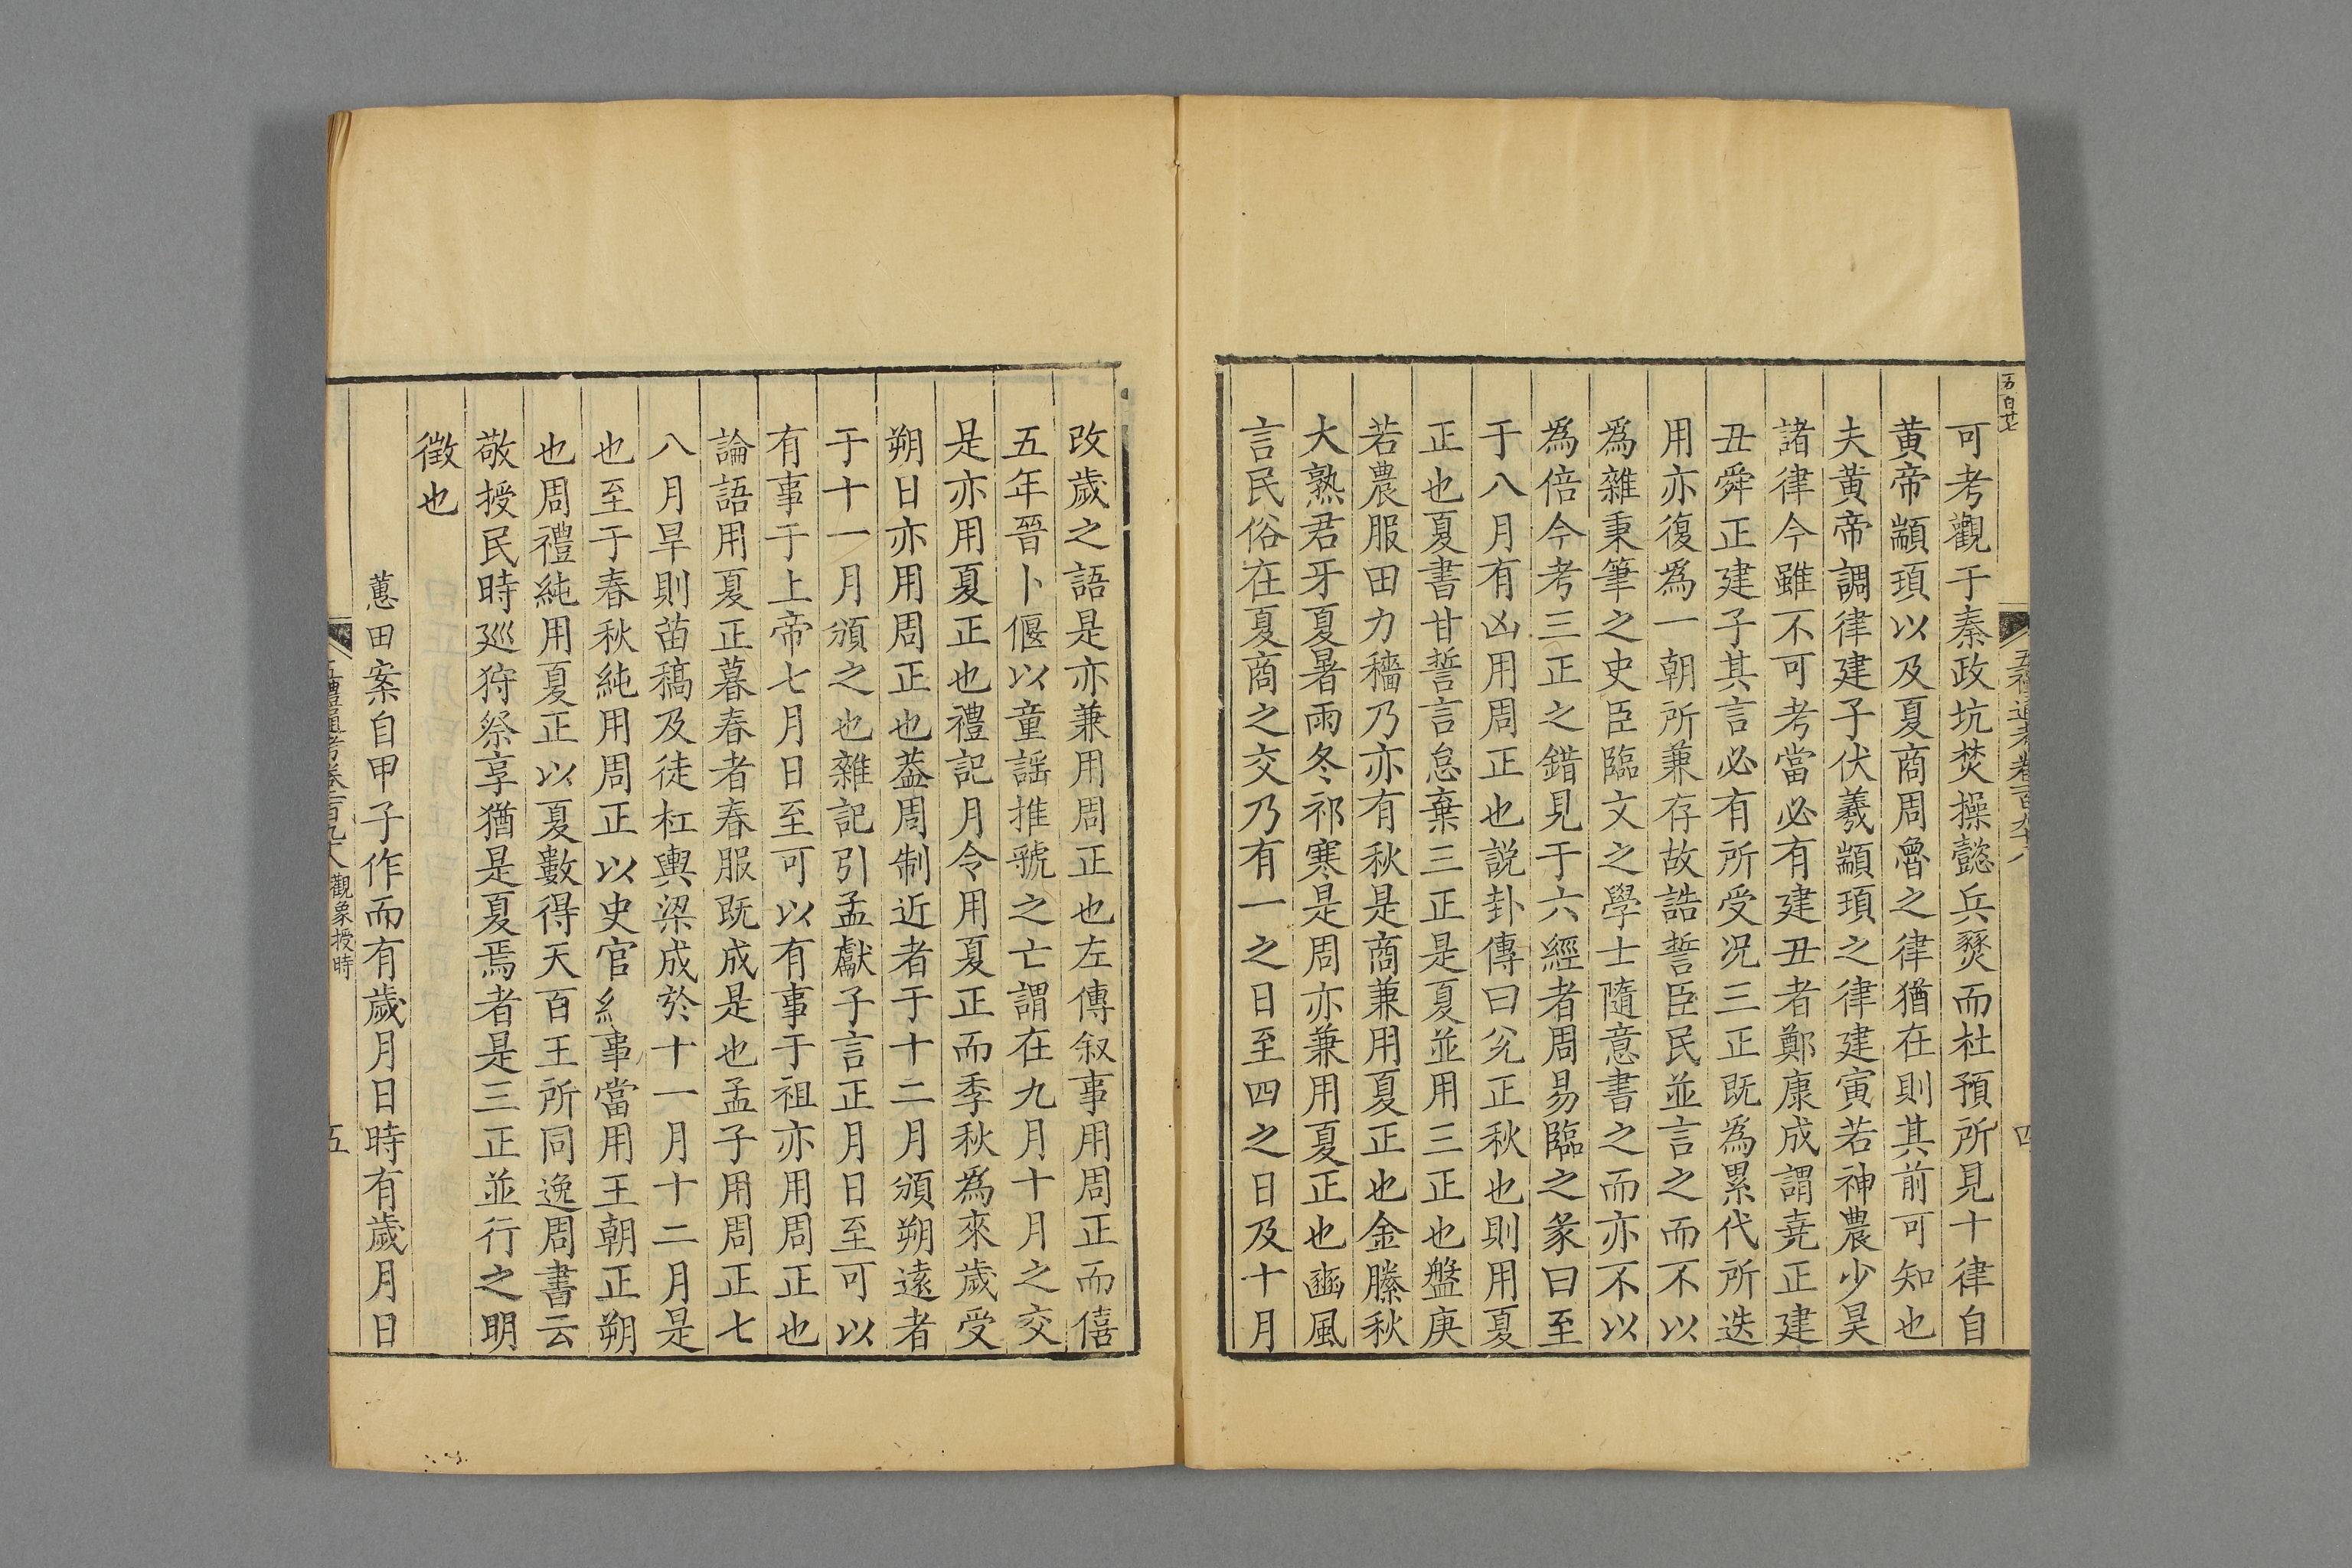 五百廿七
五禮通考卷一百九十八
四
可考觀于秦政坑焚操懿兵燹而杜預所見十律自
黃帝顓頊以及夏商周魯之律猶在則其前可知也
夫黃帝調律建子伏羲顓頊之律建寅若神農少昊
諸律今雖不可考當必有建丑者鄭康成謂堯正建
丑舜正建子其言必有所受况三正既為累代所迭
用亦復為一朝所兼存故誥誓臣民並言之而不以
為雜秉筆之史臣臨文之學士隨意書之而亦不以
為倍今考三正之錯見于六經者周易臨之彖曰至
于八月有凶用周正也説卦傳曰兊正秋也則用夏
正也夏書甘誓言怠棄三正是夏並用三正也盤庚
若農服田力穡乃亦有秋是商兼用夏正也金縢秋
大熟君牙夏暑雨冬祁寒是周亦兼用夏正也豳風
言民俗在夏商之交乃有一之日至四之日及十月
改歲之語是亦兼用周正也左傳叙事用周正而僖
五年晉卜偃以童謡推虢之亡謂在九月十月之交
是亦用夏正也禮記月令用夏正而季秋為來歲受
朔日亦用周正也葢周制近者于十二月頒朔遠者
于十一月頒之也雜記引孟獻子言正月日至可以
有事于上帝七月日至可以有事于祖亦用周正也
論語用夏正暮春者春服既成是也孟子用周正七
八月旱則苗稿及徒杠輿梁成於十一月十二月是
也至于春秋純用周正以史官紀事當用王朝正朔
也周禮純用夏正以夏數得天百王所同逸周書云
敬授民時廵狩祭享猶是夏焉者是三正並行之明
徵也
蕙田案自甲子作而有歲月日時有歲月日
五禮通考卷一百九十八 觀象授時
五